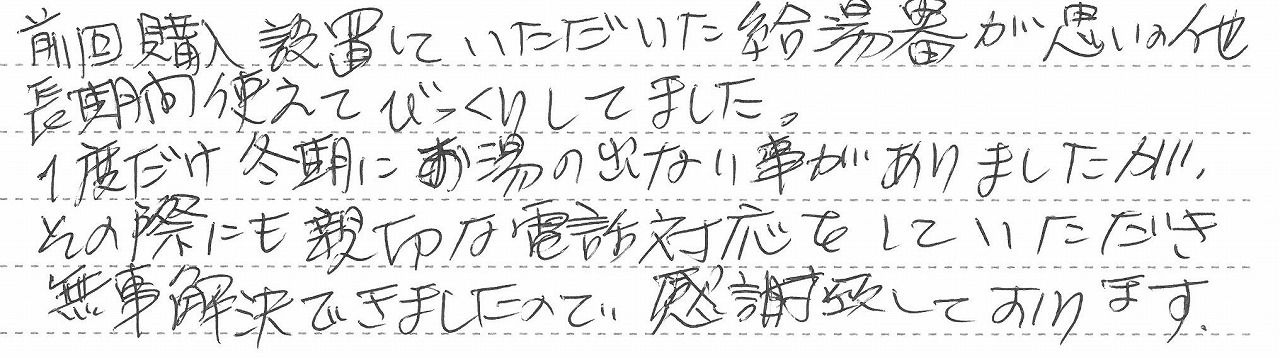 前回購入設置していただいた給湯器が思いの他
長期間使えてびっくりしてました。
1度だけ冬期にお湯の出ない事がありましたが、
その際にも親切な電話対応をしていただき
無事解決できましたので、感謝致しております。